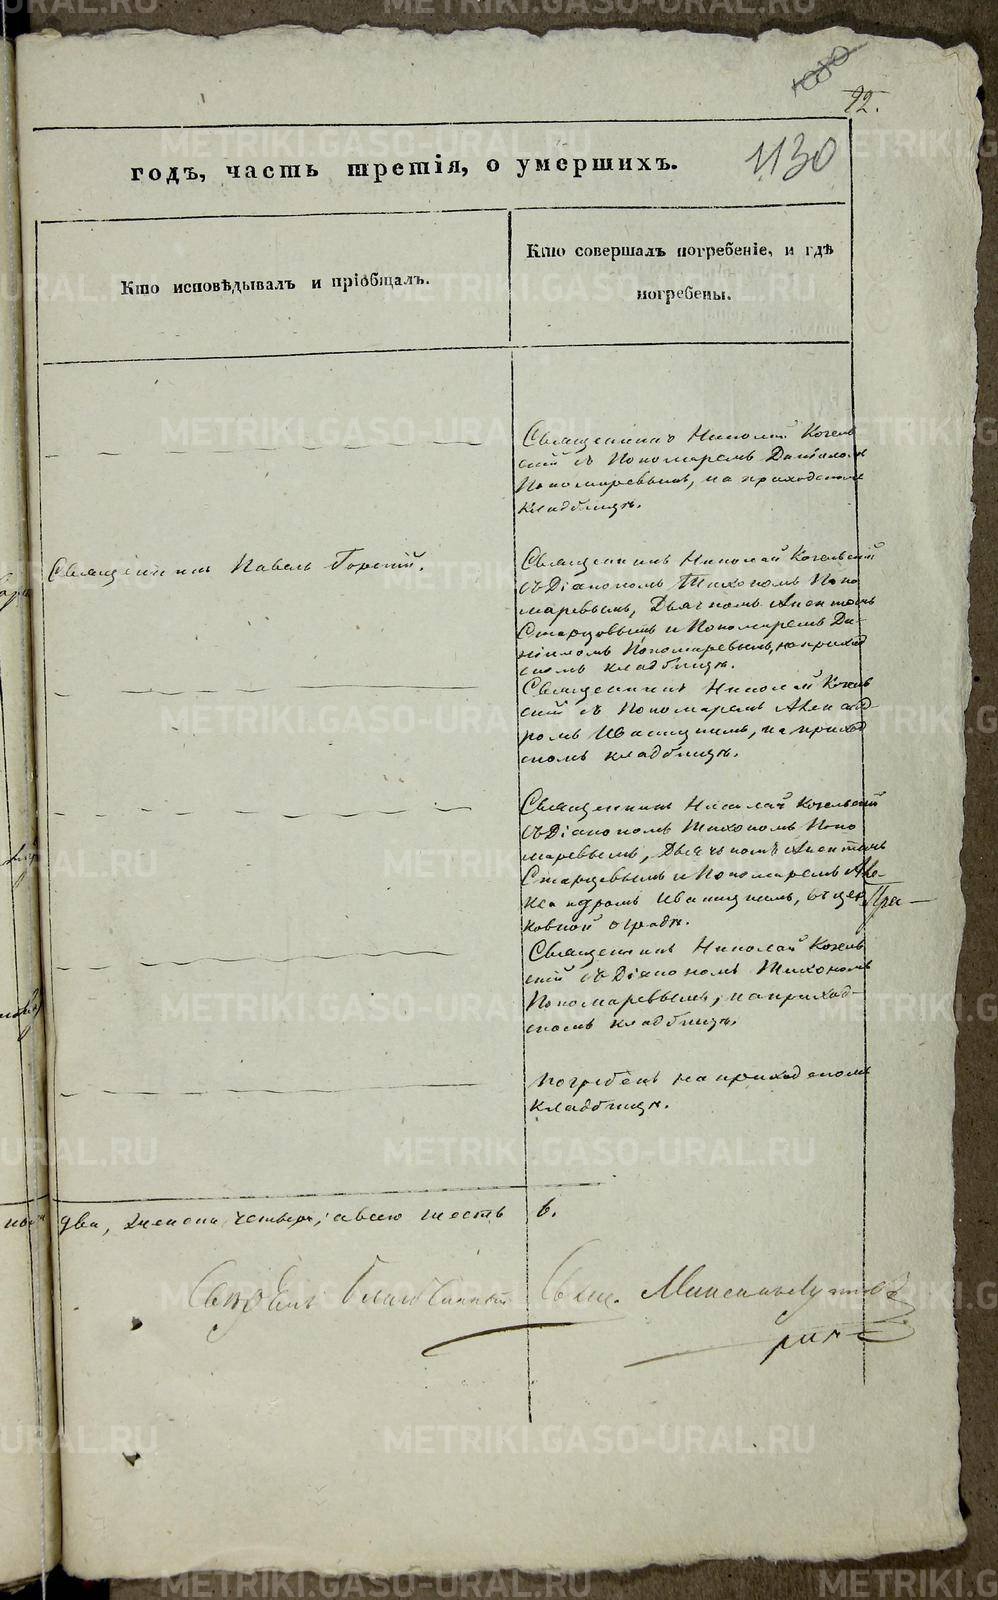 92.
1130
годъ, часть третія, о умершихъ.
Кто исповѣдывалъ и пріобщалъ.
Кто совершалъ погребеніе, и гдѣ
погребены.
Священникъ Николай Когель
скій съ Пономаремъ Даніиломъ
Пономаревымъ, на приходскомъ
кладбищѣ.
Священникъ Павелъ Горскій.
Священникъ Николай Когельскій
съ Діакономъ Тихономъ Поно
маревымъ, Дьячкомъ
Старцовымъ и Пономаремъ Да-
ніиломъ Пономаревымъ, на приход
скомъ кладбищѣ.
Священникъ Николай Когель
скій съ Пономаремъ Александ
ромъ Иваницкимъ, на приход
скомъ кладбищѣ.
Священникъ Николай Когельскій
съ Діакономъ Тихономъ Поно
маревымъ, Дьячкомъ
Старцевымъ и Пономаремъ Але-
ксандромъ Иваницкимъ, въ цер
ковной оградѣ.
Священникъ Николай Когель
скій съ Діакономъ Тихономъ
Пономаревымъ, на приход-
скомъ кладбищѣ.
Погребенъ на приходскомъ
кладбищѣ.
два, женска четыре; а всего шесть 6.
Благочинный Свящ.
METRIKI.GASO-URAL.RU